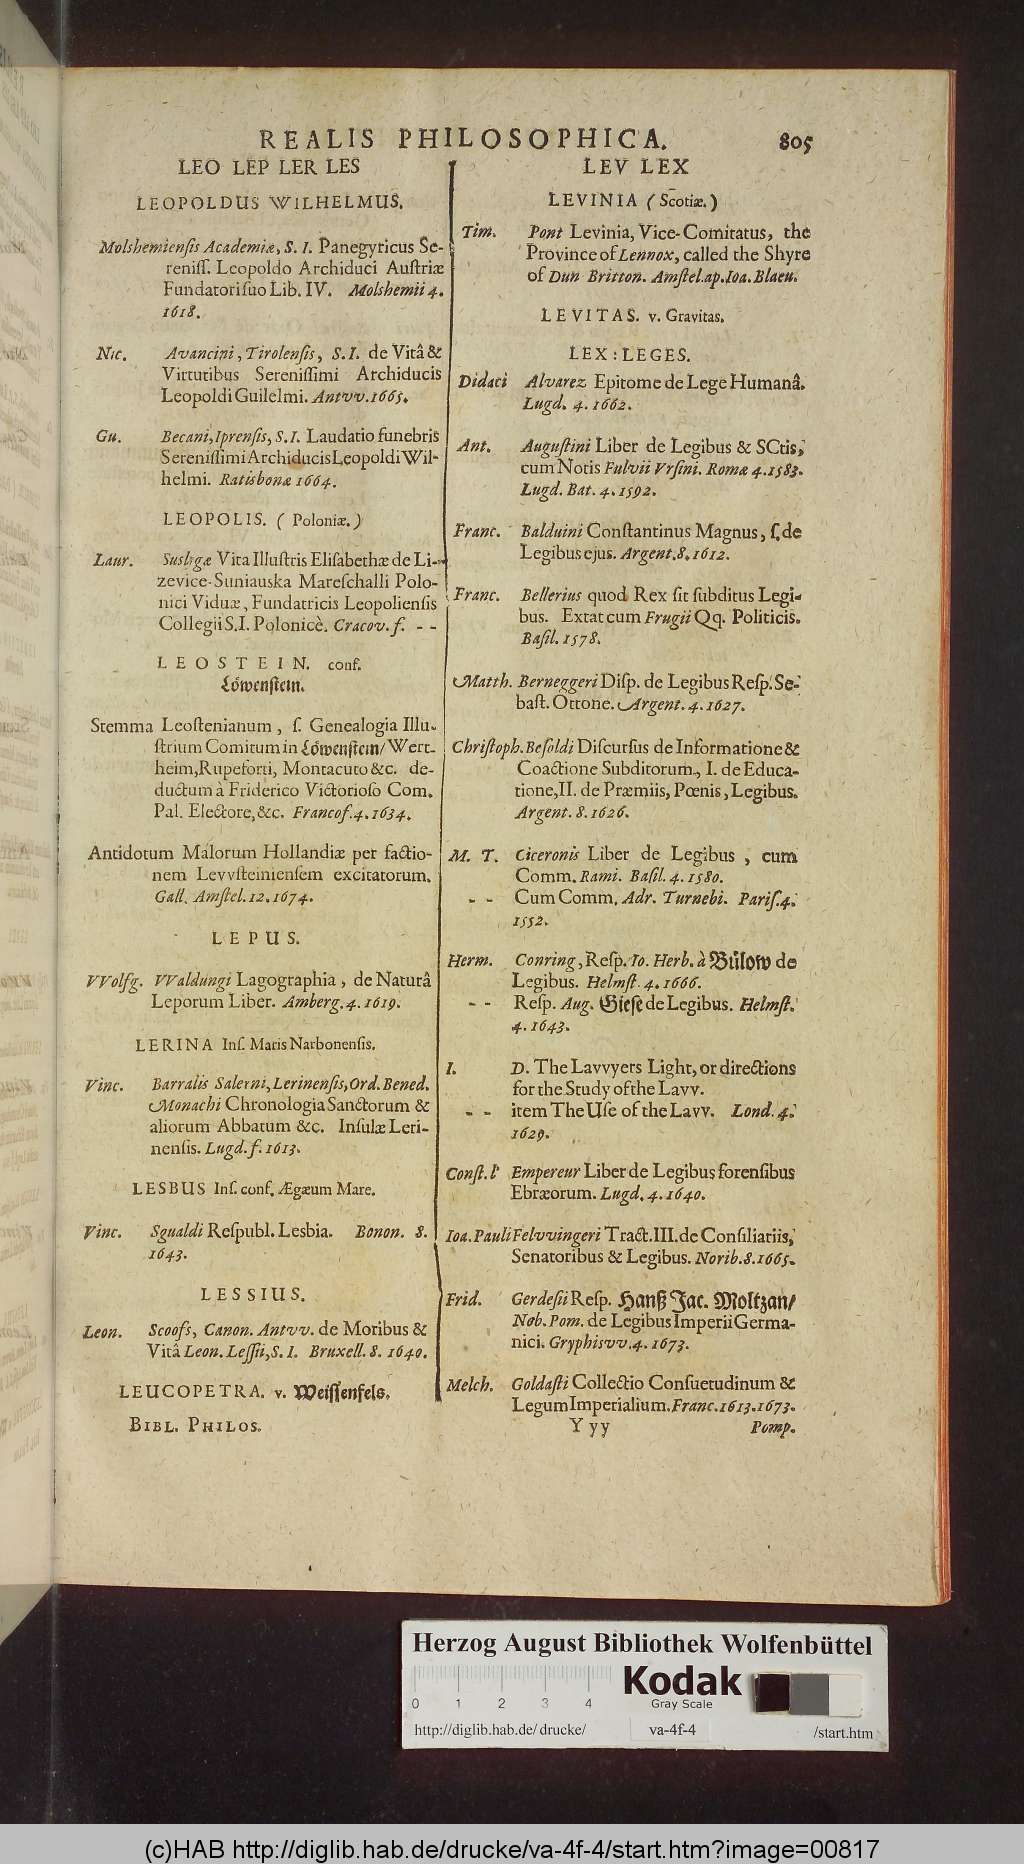 REALIS PHILOSOPHICA. 805
LEO LEP LER LES
LEOPOLDUS WILHELMUS.
Molshemiensis Academiæ, S. I. Panegyricus Se-
reniſſ. Leopoldo Archiduci Auſtriæ
Fundatori ſuo Lib. IV. Molshemii 4.
1618.
Nic. Avancini, Tirolenſis, S. I. de Vitâ &
Virtutibus Sereniſſimi Archiducis
Leopoldi Guilelmi. Antvv. 1665.
Gu. Becani, Iprenſis, S. I. Laudatio funebris
Sereniſſimi Archiducis Leopoldi Wil-
helmi. Ratisbonæ 1664.
LEOPOLIS. (Poloniæ.)
Laur. Susligæ Vita Illuſtris Eliſabethæ de Li-
zevice-Suniauska Mareſchalli Polo-
nici Viduæ, Fundatricis Leopolienſis
Collegii S.I. Polonicè. Cracov. f. - -
LEOSTEIN. conf.
Löwenſtein.
Stemma Leoſtenianum, ſ. Genealogia Illu-
ſtrium Comitum in Löwenſtein/ Wert-
heim, Rupeforti, Montacuto &c. de-
ductum à Friderico Victorioſo Com.
Pal. Electore, &c. Francof. 4. 1634.
Antidotum Malorum Hollandiæ per factio-
nem Levvſteinienſem excitatorum.
Gall. Amſtel. 12. 1674.
LEPUS.
VVolfg. VValdungi Lagographia, de Naturâ
Leporum Liber. Amberg. 4. 1619.
LERINA Inſ. Maris Narbonenſis.
Vinc. Barralis Salerni, Lerinenſis, Ord. Bened.
Monachi Chronologia Sanctorum &
aliorum Abbatum &c. Inſulæ Leri-
nenſis. Lugd. f. 1613.
LESBUS Inſ. conf. Ægæum Mare.
Vinc. Sgualdi Reſpubl. Lesbia. Bonon. 8.
1643.
LESSIUS.
Leon. Scoofs, Canon. Antvv. de Moribus &
Vitâ Leon. Leſſii, S. I. Bruxell. 8. 1640.
LEUCOPETRA. v. Weiſſenfels.
BIBL. PHILOS.
LEV LEX
LEVINIA (Scotiæ.)
Tim. Pont Levinia, Vice-Comitatus, the
Province of Lennox, called the Shyre
of Dun Britton. Amſtel. ap. Ioa. Blaeu.
LEVITAS. v. Gravitas.
LEX: LEGES.
Didaci Alvarez Epitome de Lege Humanâ.
Lugd. 4. 1662.
Ant. Auguſtini Liber de Legibus & SCtis,
cum Notis Fulvii Vrſini. Romæ 4. 1583.
Lugd. Bat. 4. 1592.
Franc. Balduini Conſtantinus Magnus, ſ. de
Legibus ejus. Argent. 8. 1612.
Franc. Bellerius quod Rex ſit ſubditus Legi-
bus. Extat cum Frugii Qq. Politicis.
Baſil. 1578.
Matth. Berneggeri Diſp. de Legibus Reſp. Se-
baſt. Ottone. Argent. 4. 1627.
Chriſtoph. Beſoldi Diſcurſus de Informatione &
Coactione Subditorum, I. de Educa-
tione, II. de Præmiis, Pœnis, Legibus.
Argent. 8. 1626.
M. T. Ciceronis Liber de Legibus, cum
Comm. Rami. Baſil. 4. 1580.
- - Cum Comm. Adr. Turnebi. Pariſ. 4.
1552.
Herm. Conring, Reſp. Io. Herb. à Bülow de
Legibus. Helmſt. 4. 1666.
- - Reſp. Aug. Gieſe de Legibus. Helmſt.
4. 1643.
I. D. The Lavvyers Light, or directions
for the Study of the Lavv.
- - item The Uſe of the Lavv. Lond. 4.
1629.
Conſt. l' Empereur Liber de Legibus forenſibus
Ebræorum. Lugd. 4. 1640.
Ioa. Pauli Felvvingeri Tract. III. de Conſiliariis,
Senatoribus & Legibus. Norib. 8. 1665.
Frid. Gerdeſii Reſp. Hanß Jac. Moltzan/
Nob. Pom. de Legibus Imperii Germa-
nici. Gryphisvv. 4. 1673.
Melch. Goldaſti Collectio Conſuetudinum &
Legum Imperialium. Franc. 1613. 1673.
Y yy Pomp.
Herzog August Bibliothek Wolfenbüttel
0 1 2 3 4
Kodak
Gray Scale
http://diglib.hab.de/drucke/ va-4f-4 /start.htm
(c)HAB http://diglib.hab.de/drucke/va-4f-4/start.htm?image=00817